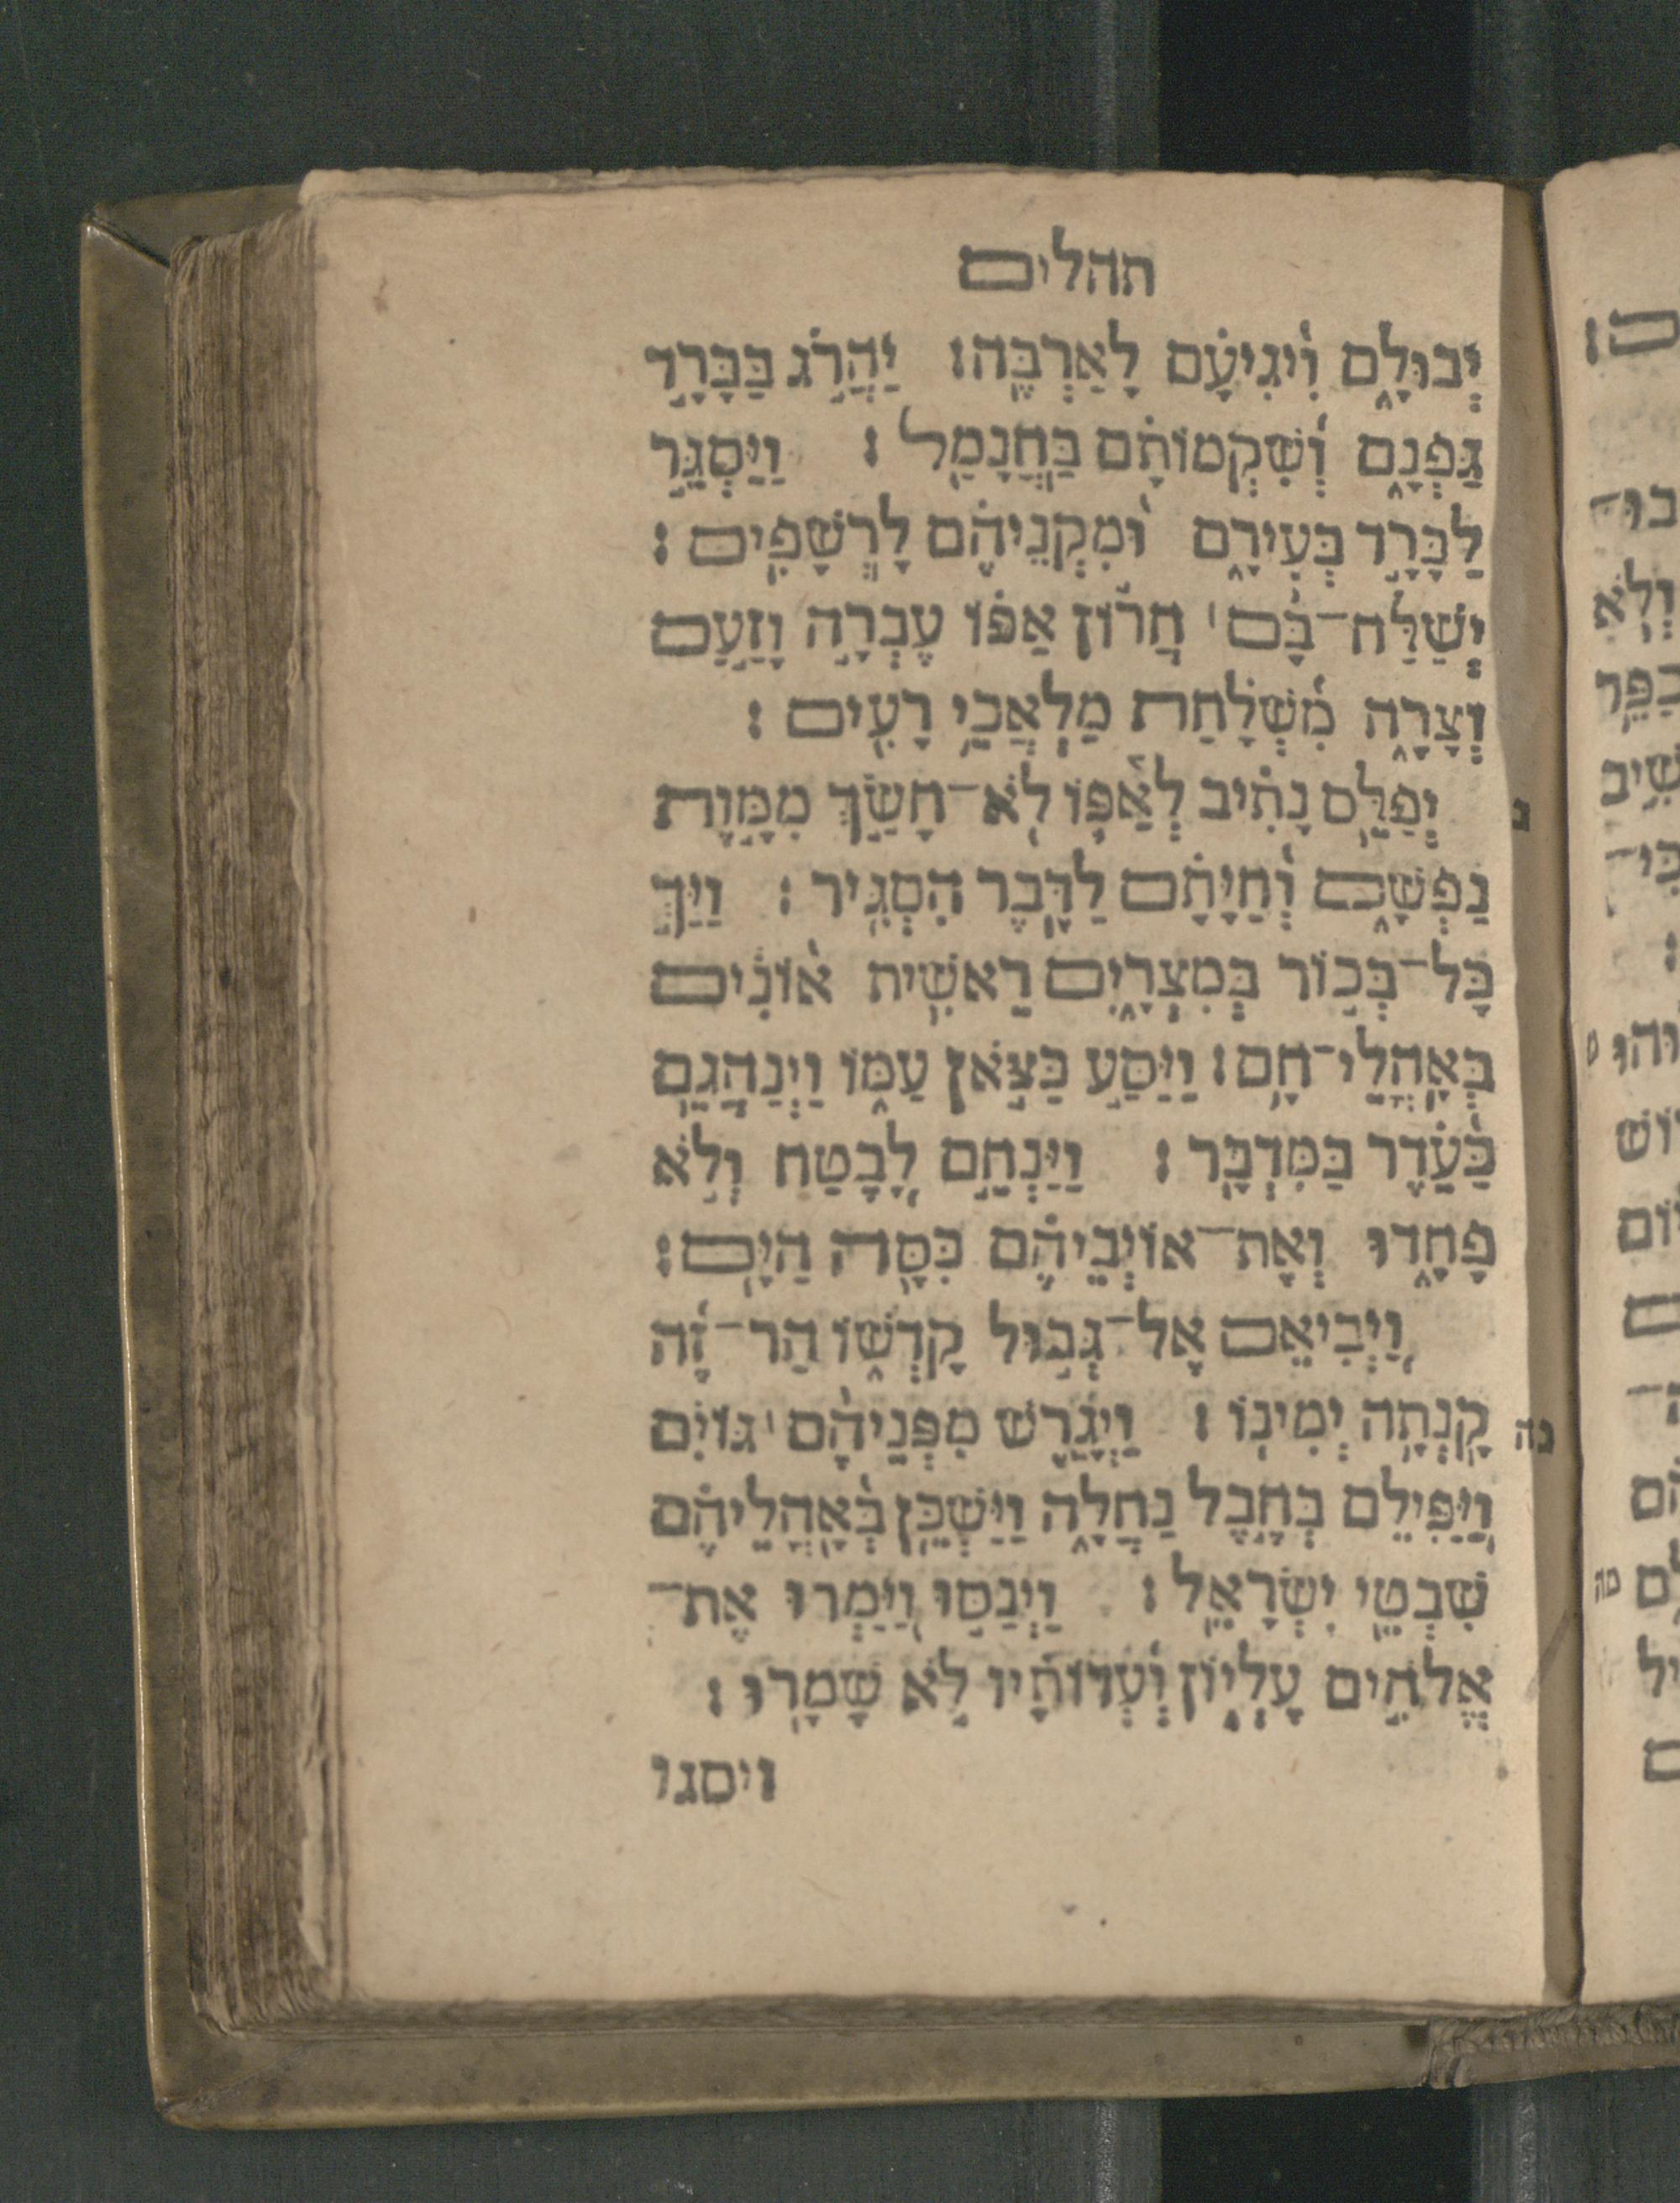 תהלים
יְבוּלָ֑ם וִ֝יגִיעָ֗ם לָאַרְבֶּֽה׃ יַהֲרֹ֣ג בַּבָּרָ֣ד
גַּפְנָ֑ם וְ֝שִׁקְמוֹתָ֗ם בַּחֲנָמַֽל׃ וַיַּסְגֵּ֣ר
לַבָּרָ֣ד בְּעִירָ֑ם וּ֝מִקְנֵיהֶ֗ם לָרְשָׁפִֽים׃
יְשַׁלַּח־בָּ֨ם׀ חֲר֬וֹן אַפּ֗וֹ עֶבְרָ֣ה וָזַ֣עַם
וְצָרָ֑ה מִ֝שְׁלַ֗חַת מַלְאֲכֵ֥י רָעִֽים׃
נ
יְפַלֵּ֥ס נָתִ֗יב לְאַ֫פּ֥וֹ לֹא־חָשַׂ֣ךְ מִמָּ֣וֶת
נַפְשָׁ֑ם וְ֝חַיָּתָ֗ם לַדֶּ֥בֶר הִסְגִּֽיר׃ וַיַּ֣ךְ
כָּל־בְּכ֣וֹר בְּמִצְרָ֑יִם רֵאשִׁ֥ית א֝וֹנִ֗ים
בְּאָהֳלֵי־חָֽם׃ וַיַּסַּ֣ע כַּצֹּ֣אן עַמּ֑וֹ וַיְנַהֲגֵ֥ם
כַּ֝עֵ֗דֶר בַּמִּדְבָּֽר׃ וַיַּנְחֵ֣ם לָ֭בֶטַח וְלֹ֣א
פָחָ֑דוּ וְאֶת־אֽ֝וֹיְבֵיהֶ֗ם כִּסָּ֥ה הַיָּֽם׃
וַ֭יְבִיאֵם אֶל־גְּב֣וּל קָדְשׁ֑וֹ הַר־זֶ֝֗ה
נה
קָנְתָ֥ה יְמִינֽוֹ׃ וַיְגָ֤רֶשׁ מִפְּנֵיהֶ֨ם׀ גּוֹיִ֗ם
וַֽ֭יַּפִּילֵם בְּחֶ֣בֶל נַחֲלָ֑ה וַיַּשְׁכֵּ֥ן בְּ֝אָהֳלֵיהֶ֗ם
שִׁבְטֵ֥י יִשְׂרָאֵֽל׃ וַיְנַסּ֣וּ וַ֭יַּמְרוּ אֶת־
אֱלֹהִ֣ים עֶלְי֑וֹן וְ֝עֵדוֹתָ֗יו לֹ֣א שָׁמָֽרוּ׃
ויסגו